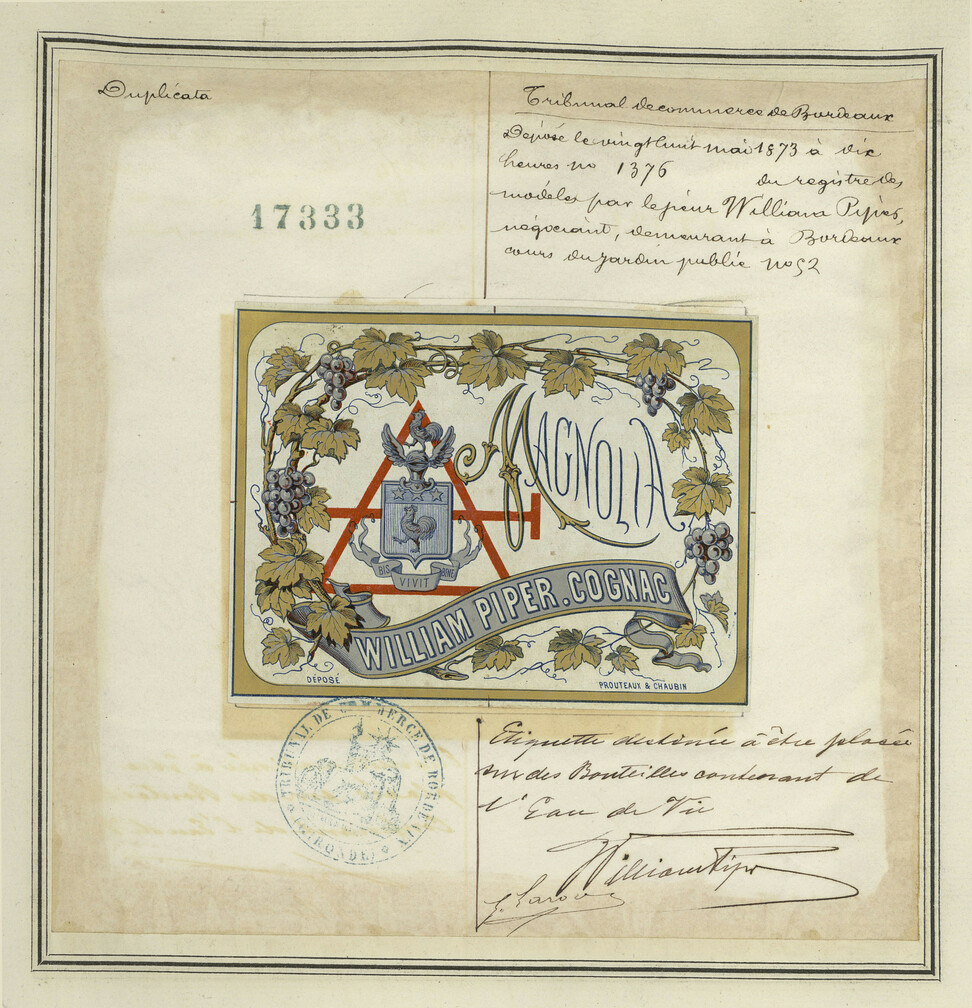 Duplicata
Tribunal de commerce de Bordeaux
Déposé le vingt huit mai 1873 à dix
heures no 1376 du registre des
modèles par le sieur William Piper,
négociant, demeurant à Bordeaux
cours du jardin public no 52
17333
MAGNOLIA
BIS VIVIT QUI BENE
WILLIAM PIPER. COGNAC
DÉPOSÉ
PROUTEAUX & CHAUBIN
TRIBUNAL DE COMMERCE DE BORDEAUX
(GIRONDE)
Etiquette destinée à être placée
sur des Bouteilles contenant de
l'Eau de Vie
William Piper